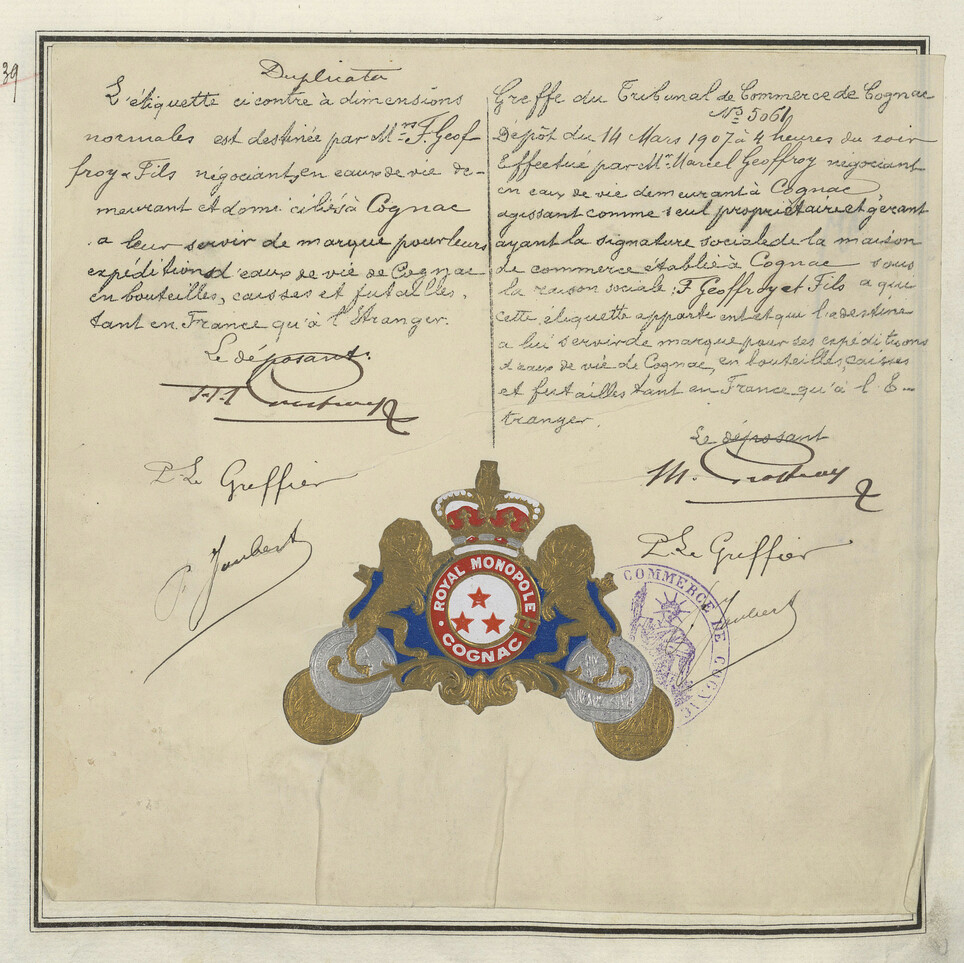 39
Duplicata
L'étiquette ci contre à dimensions
normales est destinée par Mrs F. Geof
froy & Fils négociants, en eaux de vie de-
meurant et domiciliés à Cognac
a leur servir de marque pour leurs
expéditions d'eaux de vie de Cognac
en bouteilles, caisses et futailles,
tant en France qu'à l'Etranger.
Le déposant.
P. Le Greffier
P. Joubert
Greffe du Tribunal de Commerce de Cognac
No 5061
Dépôt du 14 Mars 1907 à 4 heures du soir
Effectué par Mr Marcel Geoffroy négociant
en eaux de vie demeurant à Cognac
agissant comme seul propriétaire et gérant
ayant la signature sociale de la maison
de commerce établie à Cognac sous
la raison sociale F. Geoffroy et Fils a qui
cette étiquette appartient et qui la destine
a lui servir de marque pour ses expéditions
d'eaux de vie de Cognac, en bouteilles, caisses
et futailles tant en France qu'à l'E-
tranger.
Le déposant
M. Geoffroy
P. Le Greffier
Joubert
ROYAL MONOPOLE
COGNAC
COMMERCE DE COGNAC